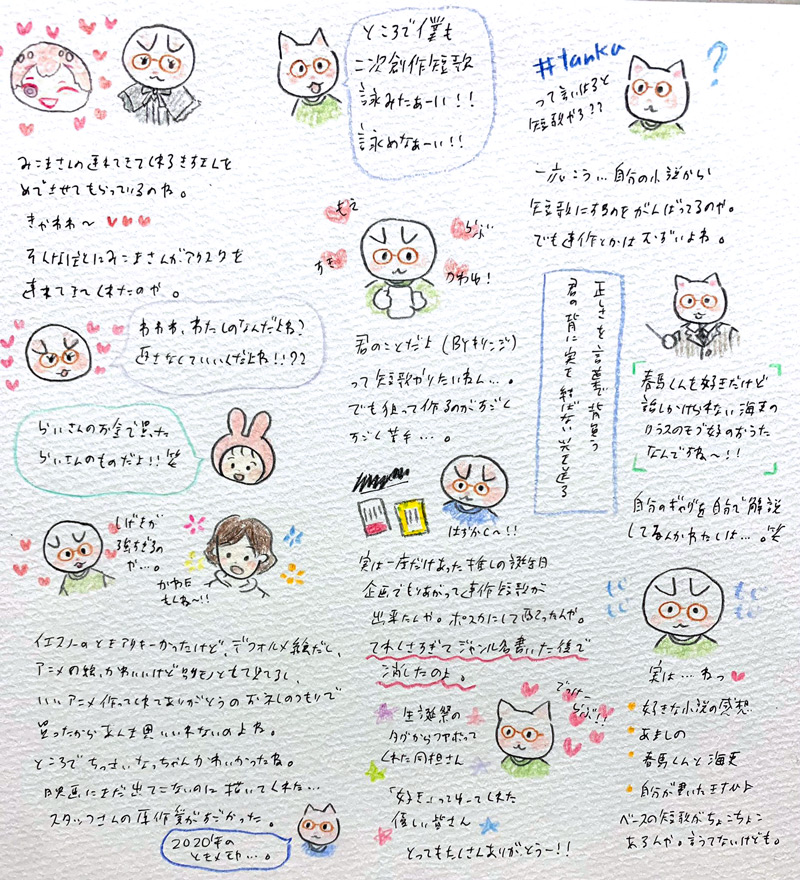 みこまさんの連れてきてくれるきすえんを
めでさせてもらっているのね。
きかわわ〜
そんなぼくにみこまさんがアクスタを
連れてきてくれたのや。
わわわ、わたしのなんだよね?
返さなくていいんだよね!!??
らいさんのお金で買った
らいさんのものだよ!!笑
しげきが
強すぎるの
や…。
かわE
もくね〜!!
イエスノーのときアクキーかったけど、デフォルメ絵だし、
アニメの絵、かわいいけど
いいアニメ作ってくれてありがとうのお布施のつもりで
買ったからあんま思い入れないのよね。
ところでちっさいなっちゃんかわいかったね。
映画にまだ出てこないのに描いてくれた…
スタッフさんの厚待遇がすごかった。
2020年の
ともメモや…。
ところで僕も
二次創作短歌
詠みたぁーい!!
詠めなぁーい!!
もえ
らぶ
すき
かわゆ!
君のことだよ(BYキリンジ)
って短歌がやりたいねん…。
でも狙って作るのがすごく
すごく苦手…。
はずかし〜!!
実は一度だけあった推しの誕生日
企画でもりあがって連作短歌が
出来たんや。ポスカにして配ったんや。
てれくさすぎてジャンル名書いた後で
消したのよ。
でっけー
らぶ!!
生誕祭の
タグからファボって
くれた同担さん
「好き」ってゆってくれた
優しい皆さん
とってもたくさんありがとうー!!
#tanka
って言いはると
短歌やろ??
?
一応こう…自分の小説から
短歌にするのをがんばってるのや。
でも連作とかはむずいよね。
正しさを言葉で背負う
君の背に実を結ばない光を送る
春馬くんを好きだけど
話しかけられない海更の
クラスのモブ女子のうた
なんですね〜!!
自分のギャグを自分で解説
してるんかわたしは…。笑
もじ
もじ
もじ
もじ
実は…ねっ
好きな小説の感想
あよしの
春馬くんと海更
自分が書いたまんが
ベースの短歌がちょこちょこ
あるんや。言うてないけども。